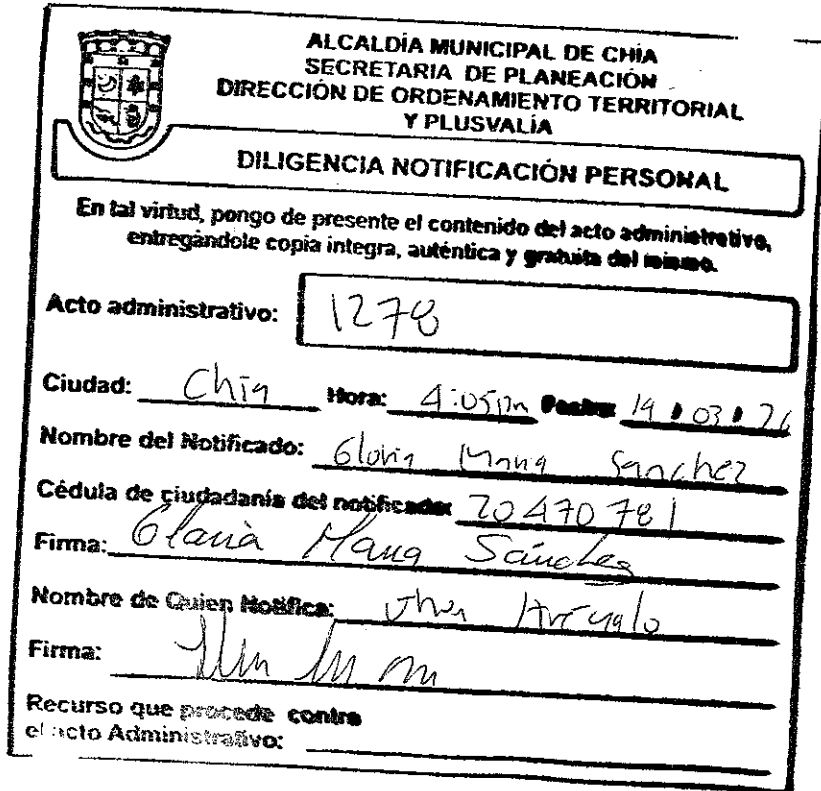 ALCALDÍA MUNICIPAL DE CHÍA
SECRETARIA DE PLANEACIÓN
DIRECCIÓN DE ORDENAMIENTO TERRITORIAL
Y PLUSVALÍA
DILIGENCIA NOTIFICACIÓN PERSONAL
En tal virtud, pongo de presente el contenido del acto administrativo,
entregándole copia integra, auténtica y gratuita del mismo.
Acto administrativo: 1278
Ciudad: Chía Hora: 4:05pm Fecha: 03
Nombre del Notificado: Gloria Maria Sanchez
Cédula de ciudadanía del notificado: 20470781
Firma: Gloria Maria Sánchez
Nombre de Quien Notifica: Arévalo
Firma:
Recurso que procede contra
el acto Administrativo: